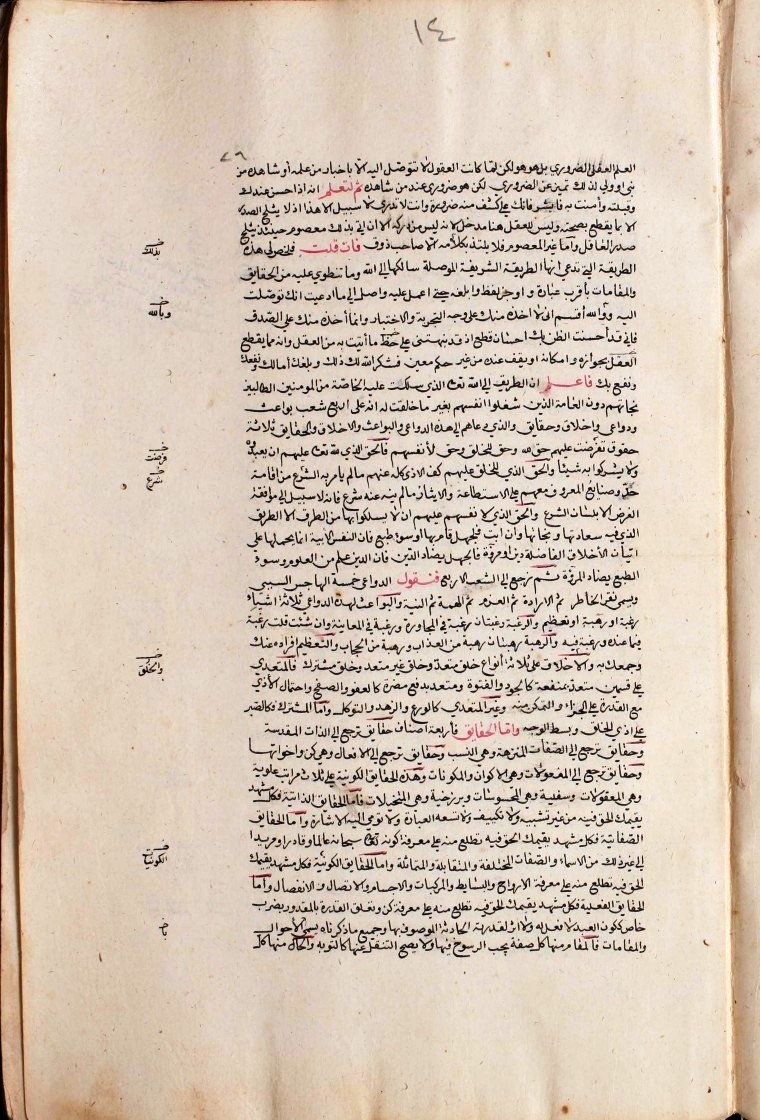 ١٤
٢٦
العلم العقلي الضروري بل هو هو لكن لما كانت العقول لا تتوصل اليه الا باخبار من علمه او شاهده من
نبي او ولي لذلك تميز عن الضروري لكن هو ضروري عند من شاهده ثم لتعلم انه اذا حسن عندك
وقبلته وآمنت به فابشر فانك على كشف منه ضرورة وانت لا تدري لا سبيل الا هذا اذ لا يثلج الصدر
الا بما يقطع بصحته وليس للعقل هنا مدخل لانه ليس من دركه الا ان اتى بذلك معصوم حينئذ يثلج
صدر العاقل واما غير المعصوم فلا يلتذ بكلامه الا صاحب ذوق فان قلت فلخص لي هذه
بذلك
الطريقة التي تدعي انها الطريقة الشريفة الموصلة سالكها الى الله وما تنطوي عليه من الحقايق
والمقامات بأقرب عبارة واوجز لفظ وابلغه حتى اعمل عليه واصل الى ما ادعيت انك توصلت
اليه ووالله أقسم اني لا آخذه منك على وجه التجربة والاختبار وانما آخذه منك على الصدق
وبالله
فاني قد أحسنت الظن بك احسان قطع اذ قد نبهتني على حظ ما أتيت به من العقل وانه مما يقطع
العقل بجوازه وامكانه او يقف عنده من غير حكم معين فشكر الله لك ذلك وبلغك آمالك ونفعك
ونفع بك فاعلم ان الطريق الى الله تعالى الذي سلكت عليه الخاصة من المومنين الطالبين
نجاتهم دون العامة الذين شغلوا انفسهم بغير ما خلقت له انه على اربع شعب بواعث
ودواعي واخلاق وحقايق والذي دعاهم الى هذه الدواعي والبواعث والاخلاق والحقايق ثلاثة
حقوق تفرضت عليهم حق لله وحق للخلق وحق لأنفسهم فالحق الذي لله تعالى عليهم ان يعبدوه
فرضت
ولا يشركوا به شيئا والحق الذي للخلق عليهم كف الاذى كله عنهم مالم يأمر به الشرع من اقامة
شرع
حد وصنائع المعروف معهم على الاستطاعة والايثار مالم ينه عنه شرع فانه لا سبيل الى موافقة
الغرض الا بلسان الشرع والحق الذي لانفسهم عليهم ان لا يسلكوا بها من الطرق الا الطريق
الذي فيه سعادتها ونجاتها وان أبت فلجهل قام بها او سوء طبع فان النفس الأبية انما يحملها على
اتيان الأخلاق الفاضلة دين او مروة فالجهل يضاد الدين فان الدين علم من العلوم وسوء
الطبع يضاد المروة ثم نرجع الى الشعب الاربع فنقول الدواعي خمسة الهاجس السببي
ويسمى نقر الخاطر ثم الارادة ثم العزم ثم الهمة ثم النية والبواعث لهذه الدواعي ثلاثة اشياء
رغبة او رهبة او تعظيم والرغبة رغبتان رغبة في المجاورة ورغبة في المعاينة وان شئت قلت رغبة
فيما عنده ورغبة فيه والرهبة رهبتان رهبة من العذاب ورهبة من الحجاب والتعظيم افراده عنك
وجمعك به والاخلاق على ثلاثة أنواع خلق متعد وخلق غير متعد وخلق مشترك فالمتعدي
والخلق
على قسمين متعد بمنفعة كالجود والفتوة ومتعد بدفع مضرة كالعفو والصفح واحتمال الأذى
مع القدرة على الجزاء والتمكن منه وغير المتعدي كالورع والزهد والتوكل واما المشترك فكالصبر
على اذى الخلق وبسط الوجه واما الحقايق فأربعة اصناف حقايق ترجع الى الذات المقدسة
وحقايق ترجع الى الصفات المنزهة وهي النسب وحقايق ترجع الى الافعال وهي كن واخواتها
وحقايق ترجع الى المفعولات وهي الاكوان والمكونات وهذه الحقايق الكونية على ثلاث مراتب علوية
وهي المعقولات وسفلية وهي المحسوسات وبرزخية وهي المتخيلات فاما الحقايق الذاتية فكل مشهد
يقيمك الحق فيه من غير تشبيه ولا تكييف ولا تسعه العبارة ولا تومي اليه الاشارة واما الحقايق
الصفاتية فكل مشهد يقيمك الحق فيه تطلع منه على معرفة كونه تعالى سبحانه عالما وقادرا ومريدا
الى غير ذلك من الاسماء والصفات المختلفة والمتقابلة والمتماثلة واما الحقايق الكونية فكل مشهد يقيمك
الكونيات
الحق فيه تطلع منه على معرفة الارواح والبسايط والمركبات والاجسام والاتصال والانفصال واما
الحقايق الفعلية فكل مشهد يقيمك الحق فيه تطلع منه على معرفة كن وتعلق القدرة بالمقدور بضرب
خاص لكون العبد لا فعل له ولا اثر لقدرته الحادثة الموصوف بها وجميع ما ذكرناه يسمى الأحوال
والمقامات فالمقام منها كل صفة يجب الرسوخ فيها ولا يصح التنقل عنها كالتوبة والحال منها كل